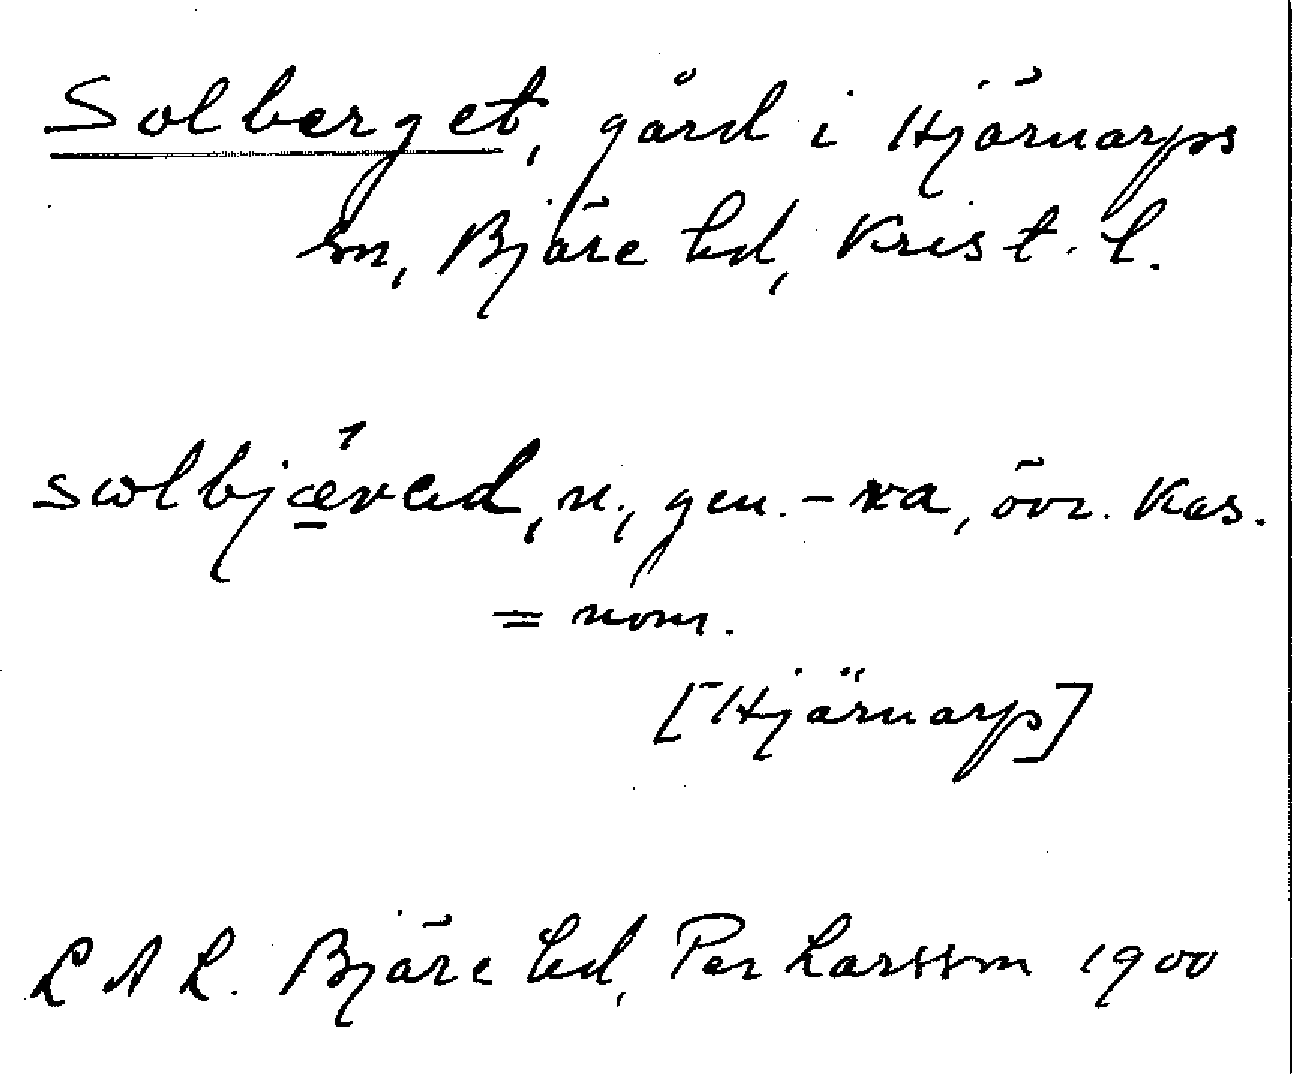 Solberget, gård i Hjärnarps
sn, Bjäre hd, Krist. l.
swlbjǽ̱rad, n., gen. -xa, övr. kas.
= nom.
[Hjärnarp]
L A L. Bjäre hd, Per Larsson 1900